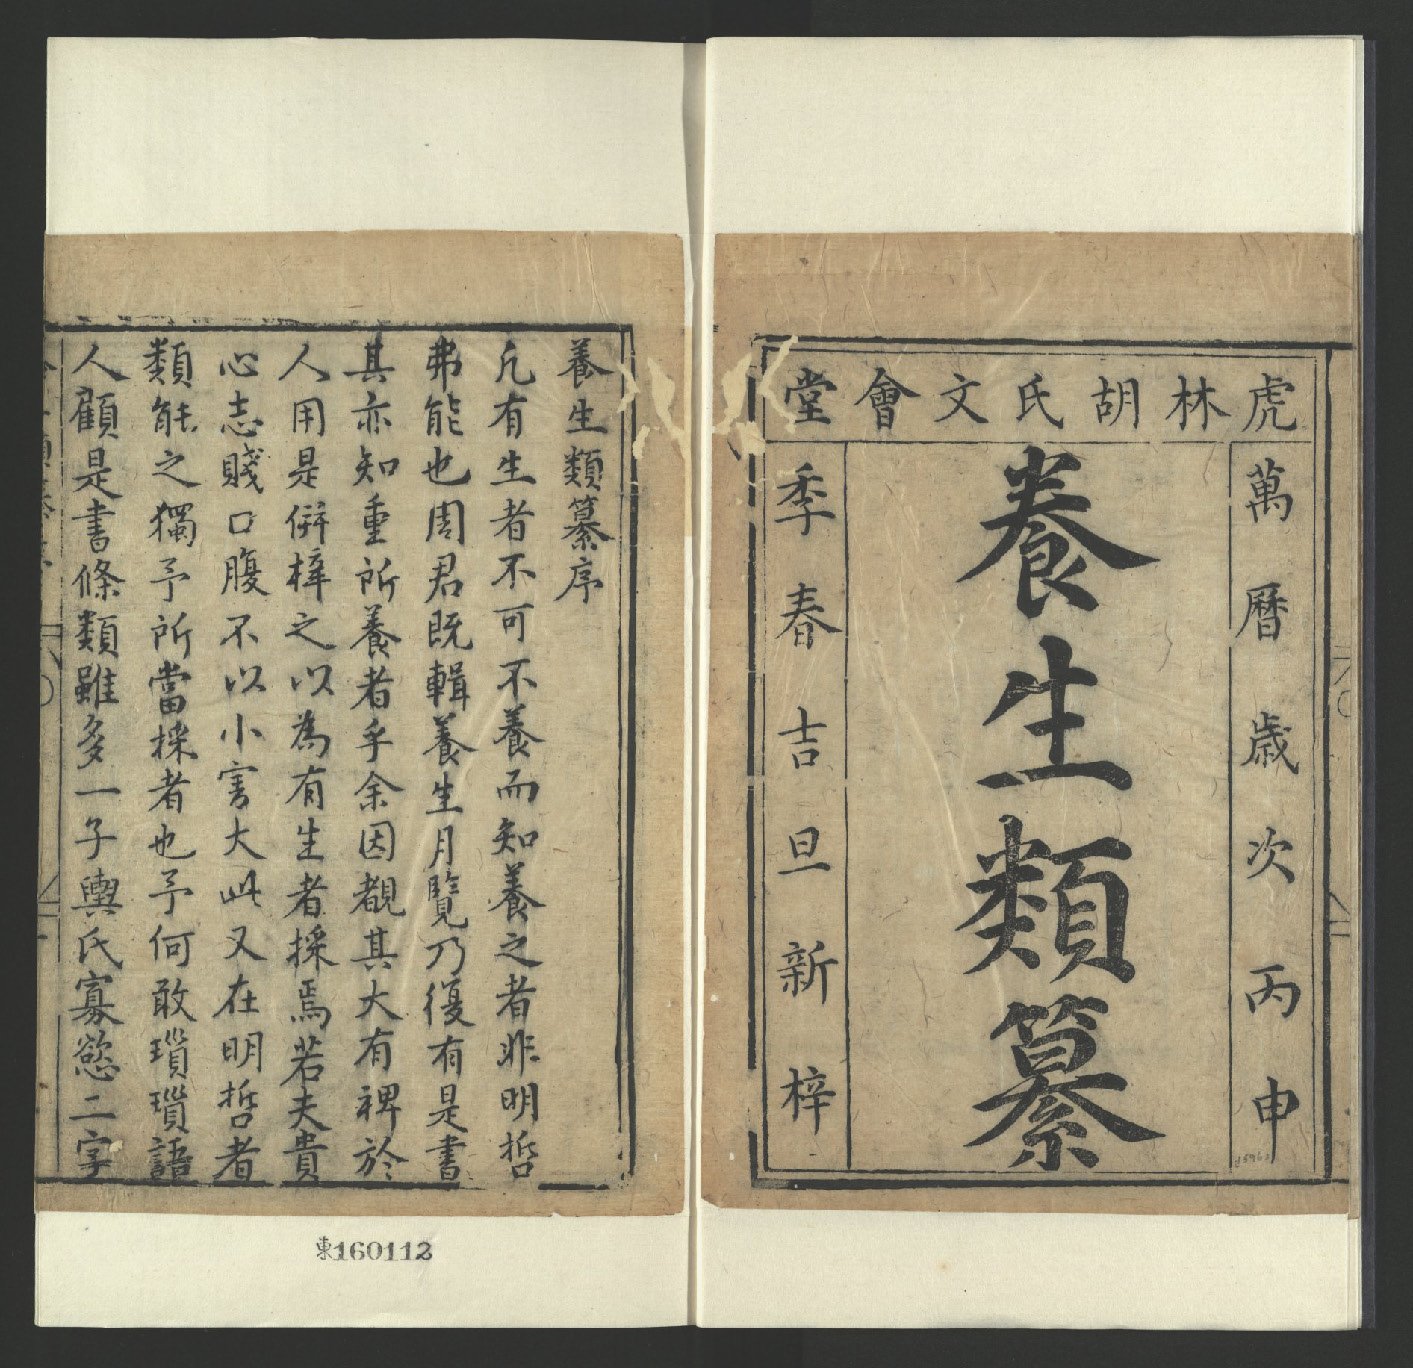 虎林胡氏文會堂
萬曆歲次丙申
養生類纂
季春吉旦新梓
養生類纂序
凢有生者不可不養而知養之者非明哲
弗能也周君既輯養生月覽乃復有是書
其亦知重所養者乎余因覩其大有裨於
人用是倂梓之以為有生者採焉若夫貴
心志賤口腹不以小害大此又在明哲者
類能之獨予所當採者也予何敢瑣瑣語
人顧是書條類雖多一子輿氏寡慾二字
東160112